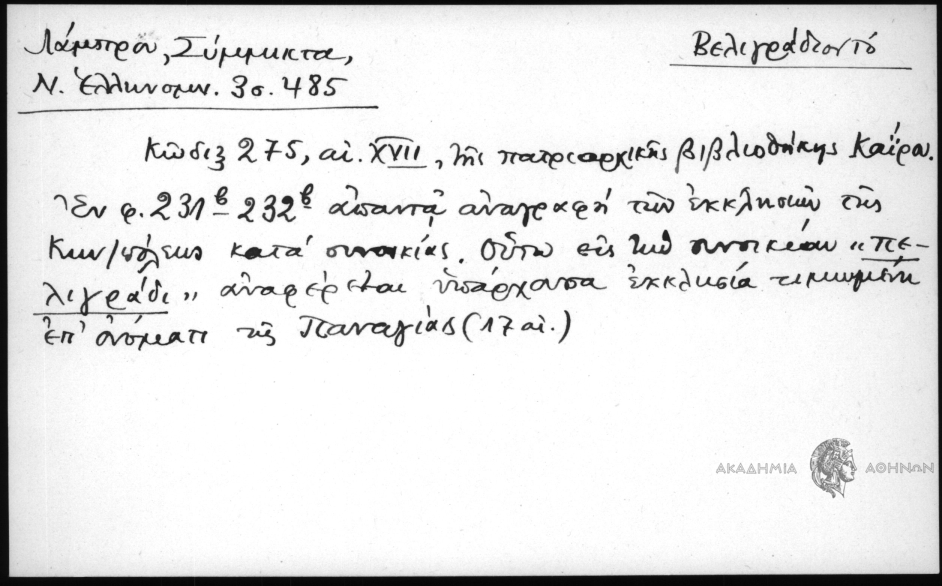 Λάμπρου, Σύμμικτα,
Ν. Ἑλληνομν. 3 σ. 485
Βελιγράδιον τό
Κῶδιξ 275, αἰ. XVII, τῆς πατριαρχικῆς βιβλιοθήκης Καΐρου.
Ἐν φ. 231β-232β ἀπαντᾷ ἀναγραφή τῶν ἐκκλησιῶν τῆς
Κων/πόλεως κατά συνοικίας. Οὕτω εἰς τήν συνοικίαν „Πε-
λιγράδι„ ἀναφέρεται ὑπάρχουσα ἐκκλησία τιμωμένη
ἐπ' ὀνόματι τῆς Παναγίας (17 αἰ.)
ΑΚΑΔΗΜΙΑ ΑΘΗΝΩΝ